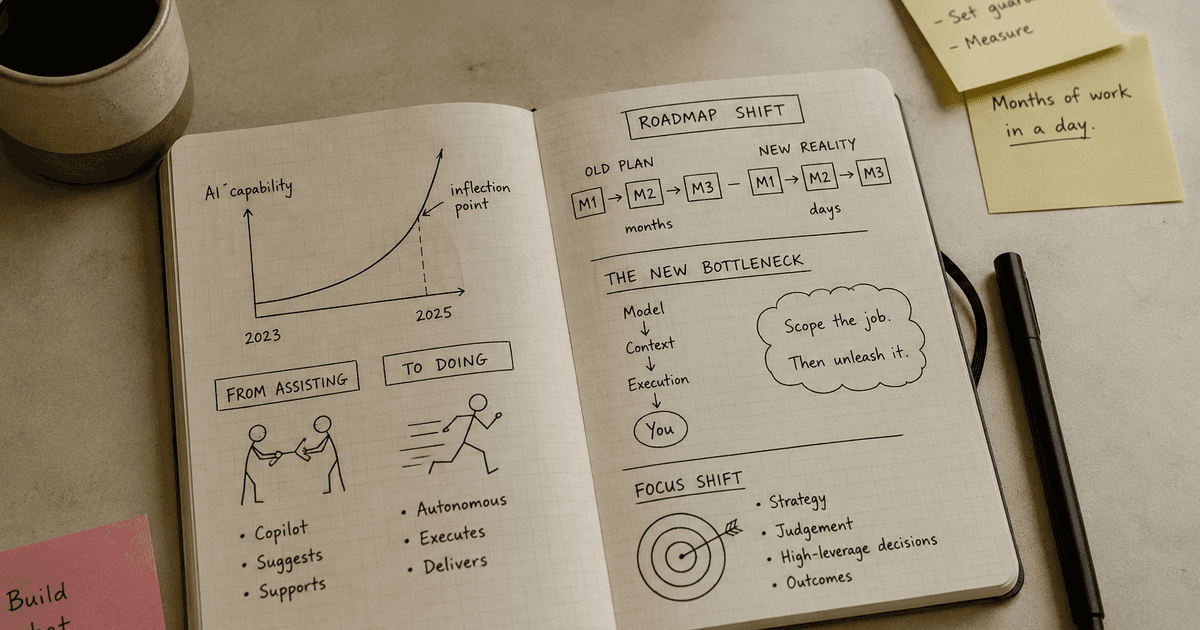 AI capability
inflection
point
2023
2025
FROM ASSISTING
TO DOING
• Copilot
• Suggests
• Supports
• Autonomous
• Executes
• Delivers
ROADMAP SHIFT
OLD PLAN
NEW REALITY
M1 → M2 → M3 – M1 → M2 → M3
months
days
THE NEW BOTTLENECK
Model
↓
Context
↓
Execution
↓
You
Scope the job.
Then unleash it.
FOCUS SHIFT
• Strategy
• Judgement
• High-leverage decisions
• Outcomes
- Set
- Measure
Months of work
in a day.
Build